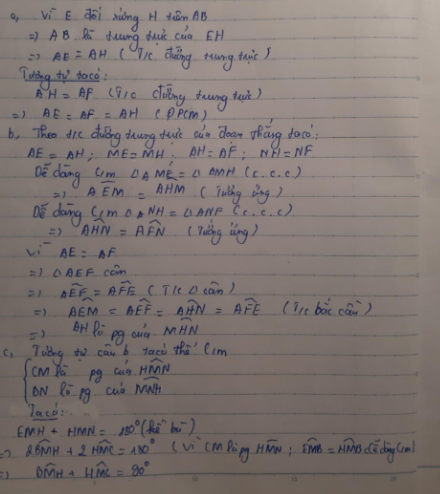 a, Vì E đối xứng H trên AB
=> AB là trung trực của EH
=> AE = AH (T/c đường trung trực)
Tương tự ta có:
AH = AF (T/c đường trung trực)
=> AE = AF = AH (ĐPCM)
b, Theo t/c đường trung trực của đoạn thẳng ta có:
AE = AH; ME = MH; AH = AF; NH = NF
Dễ dàng C/m △AME = △AMH (c.c.c)
=> AÊM = AĤM (Tương ứng)
Dễ dàng C/m △ANH = △ANF (c.c.c)
=> AĤN = AF̂N (Tương ứng)
Vì AE = AF
=> △AEF cân
=> AÊF = AF̂E (T/c △ cân)
=> AÊM = AÊF = AĤN = AF̂E (T/c bắc cầu)
=> AH là pg của MĤN
c, Tương tự câu b ta có thể C/m
CM là pg của HM̂N
BN là pg của MN̂H
Ta có:
EMH + HMN = 180° (kề bù)
=> 2BM̂H + 2HM̂C = 180° (Vì CM là pg HM̂N; EM̂B = HM̂B dễ dàng C/m)
=> BM̂H + HM̂C = 90°